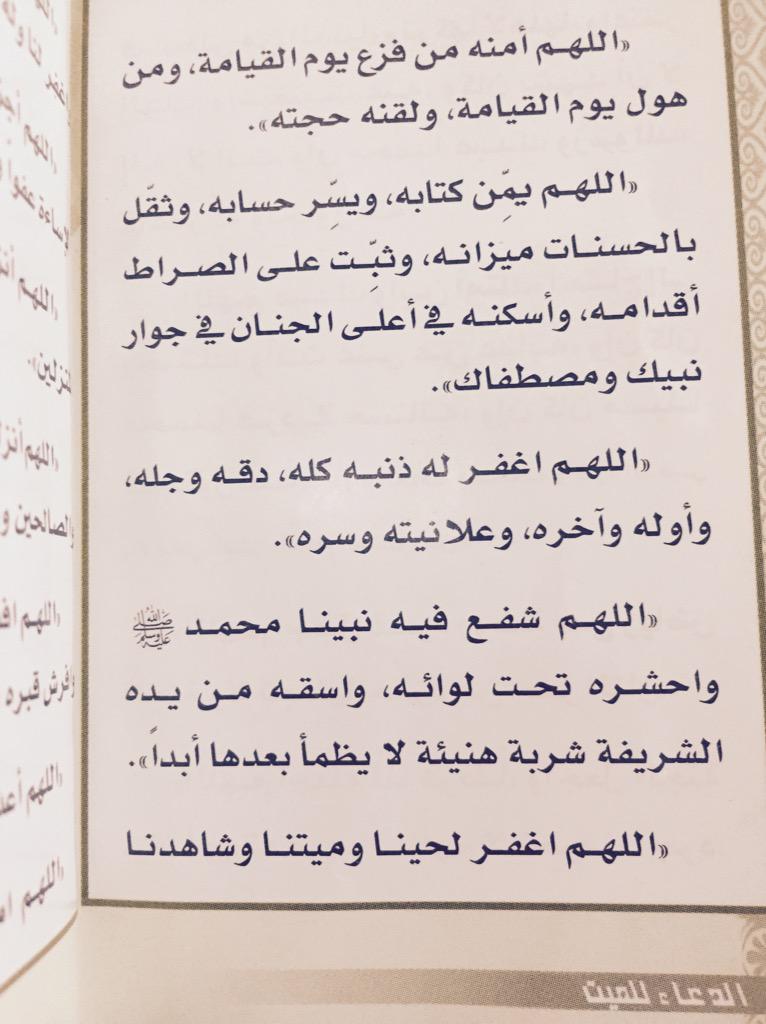 «اللهم أمنه من فزع يوم القيامة، ومن
هول يوم القيامة، ولقنه حجته».
«اللهم يمِّن كتابه، ويسِّر حسابه، وثقّل
بالحسنات ميزانه، وثبِّت على الصراط
أقدامه، وأسكنه في أعلى الجنان في جوار
نبيك ومصطفاك».
«اللهم اغفر له ذنبه كله، دقه وجله،
وأوله وآخره، وعلانيته وسره».
«اللهم شفع فيه نبينا محمد ﷺ
واحشره تحت لوائه، واسقه من يده
الشريفة شربة هنيئة لا يظمأ بعدها أبداً».
«اللهم اغفر لحينا وميتنا وشاهدنا
الدعاء للميت